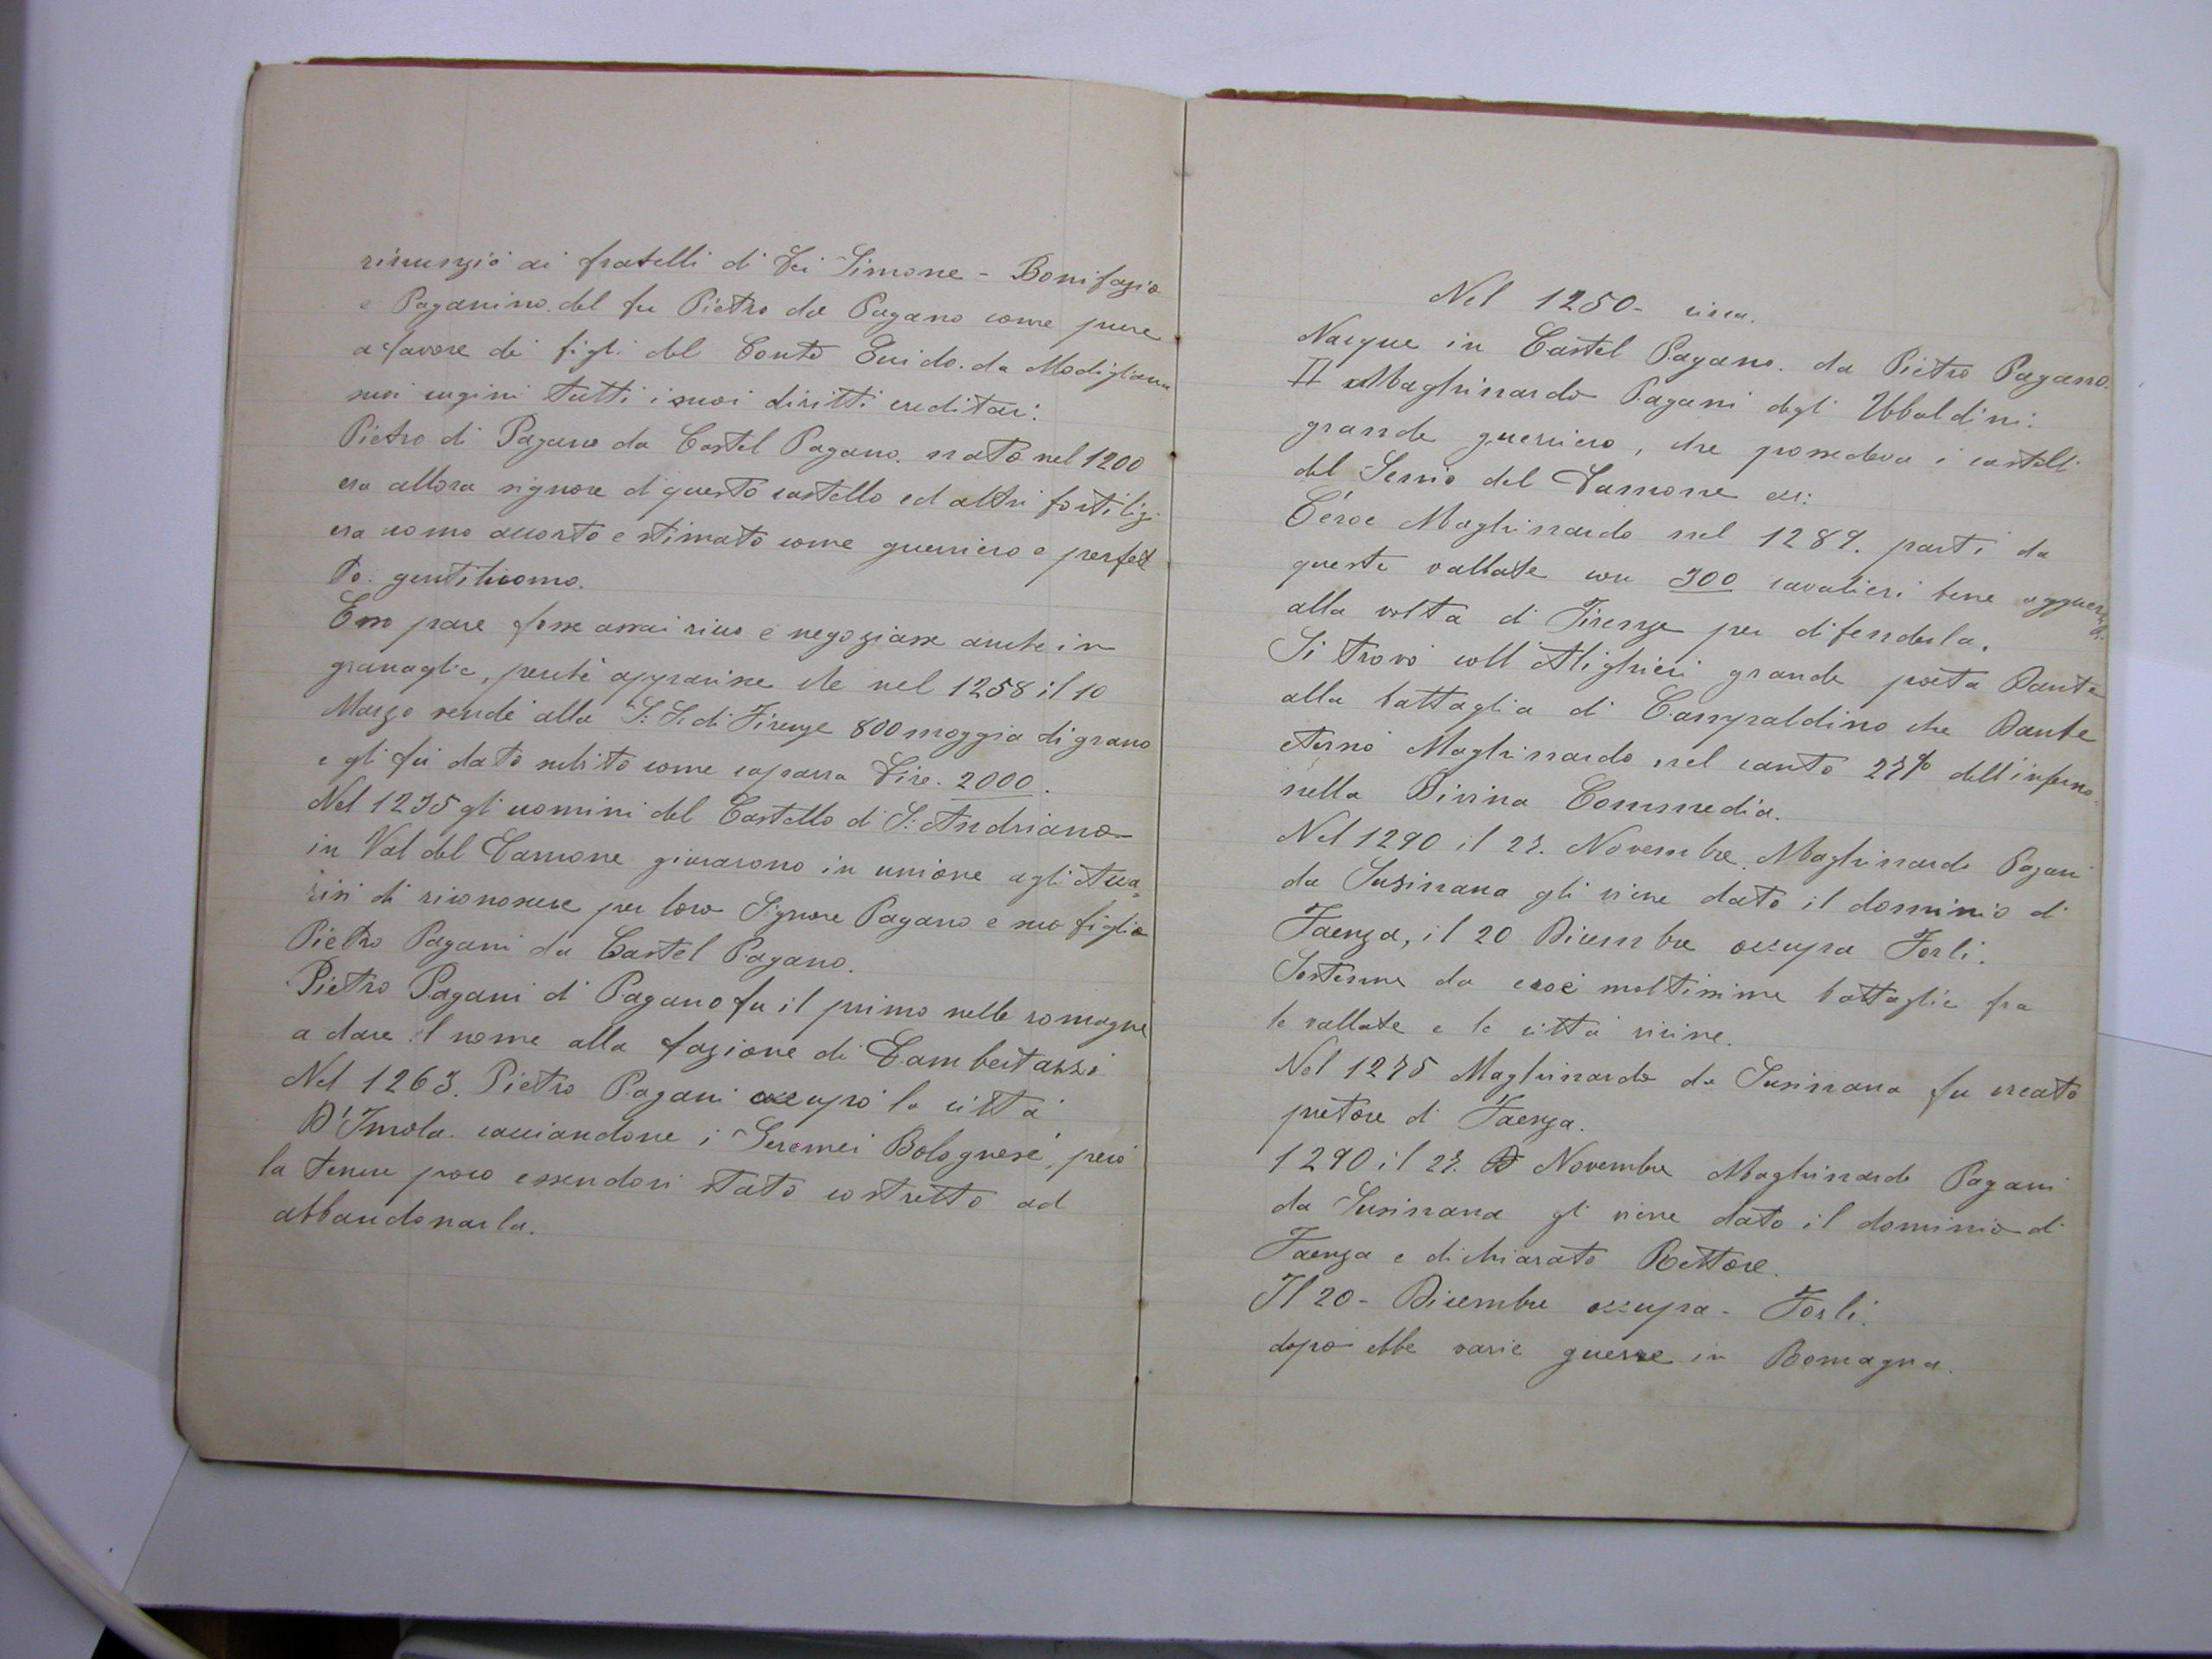 rinunziò ai fratelli di Lei Simone - Bonifazio
e Paganino. del fu Pietro da Pagano come pure
a favore di figli del Conte Guido. da Modigliana
suoi cugini tutti i suoi diritti ereditari:
Pietro di Pagano da Castel Pagano. nato nel 1200
era allora signore di questo castello ed altri fortilizi
era uomo accorto e stimato come guerriero e perfet
to. gentiluomo.
Esso pare fosse assai ricco e negoziasse anche in
granaglie, perchè apparisce che nel 1258 il 10
Marzo vendè alla S. S. di Firenze 800 moggia di grano
e gli fu dato subito come caparra Lire. 2000.
Nel 1235 gli uomini del Castello di S. Andriano
in Val del Lamone giurarono in unione agli Acca=
risi di riconoscere per loro Signore Pagano e suo figlio
Pietro Pagani da Castel Pagano.
Pietro Pagani di Pagano fu il primo nelle romagne
a dare il nome alla fazione di Lambertazzi
Nel 1263. Pietro Pagani occupò la città
D'Imola. cacciandone i Geremei Bolognesi, però
la tenne poco essendovi stato costretto ad
abbandonarla.
Nel 1250 - circa.
Nacque in Castel Pagano. da Pietro Pagano.
Il Maghinardo Pagani degli Ubbaldini:
grande guerriero, che possedeva i castelli
del Senio del Lamone ecc:
L'éroe Maghinardo nel 1289. partì da
queste vallate con 300 cavalieri bene agguerriti
alla volta di Firenze per difenderla.
Si trovò coll'Alighieri grande poeta Dante
alla battaglia di Campaldino che Dante
eternò Maghinardo nel canto 27º dell'inferno.
nella Divina Commedia.
Nel 1290 il 23. Novembre Maghinardo Pagani
da Susinana gli viene dato il dominio di
Faenza, il 20 Dicembre occupa Forlì.
Sostenne da eroe moltissime battaglie fra
le vallate e le città vicine.
Nel 1275 Maghinardo da Susinana fu creato
pretore di Faenza.
1290 il 23. Novembre Maghinardo Pagani
da Susinana gli viene dato il dominio di
Faenza e dichiarato Rettore.
Il 20 - Dicembre occupa - Forlì.
dopo ebbe varie guerre in Romagna.